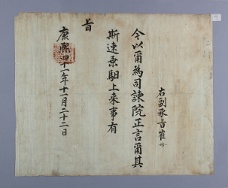 右副承旨崔
今以爾爲司諫院正言爾其
斯速乘馹上來事有
旨
康熙四十一年十一月二十二日